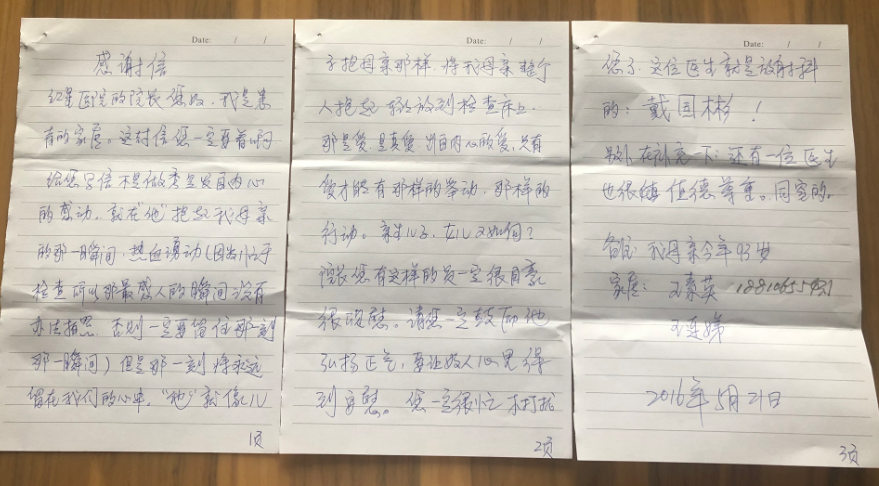 Date: / /
感谢信
红星医院的院长您好，我是患
者的家属。这封信您一定要看啊
给您写信不是做秀是发自内心
的感动，就在"他"抱起我母亲
的那一瞬间，热血涌动(因为几乎
检查所以那最感人的瞬间没有
办法拍照 否则一定要留住那一刻
那一瞬间)但是那一刻将永远
留在我们的心中，"他"就像儿
1页
Date: / /
子抱母亲那样，将我母亲整个
人抱起 轻放到检查床上.
那是爱 是真爱 出自内心的爱，只有
爱才能有那样的举动，那样的
行动。亲生儿子，女儿又如何？
院长您有这样的员一定很自豪
很欣慰。请您一定鼓励他
弘扬正气，要让好人心里得
到安慰。您一定很忙 不打扰
2页
Date: / /
您了，这位医生就是放射科
的：戴国彬！
另外在补充一下：还有一位医生
也很 值德尊重。同室的。
备注：我母亲今年93岁
家属：王素英
王连娣
2016年5月21日
3页